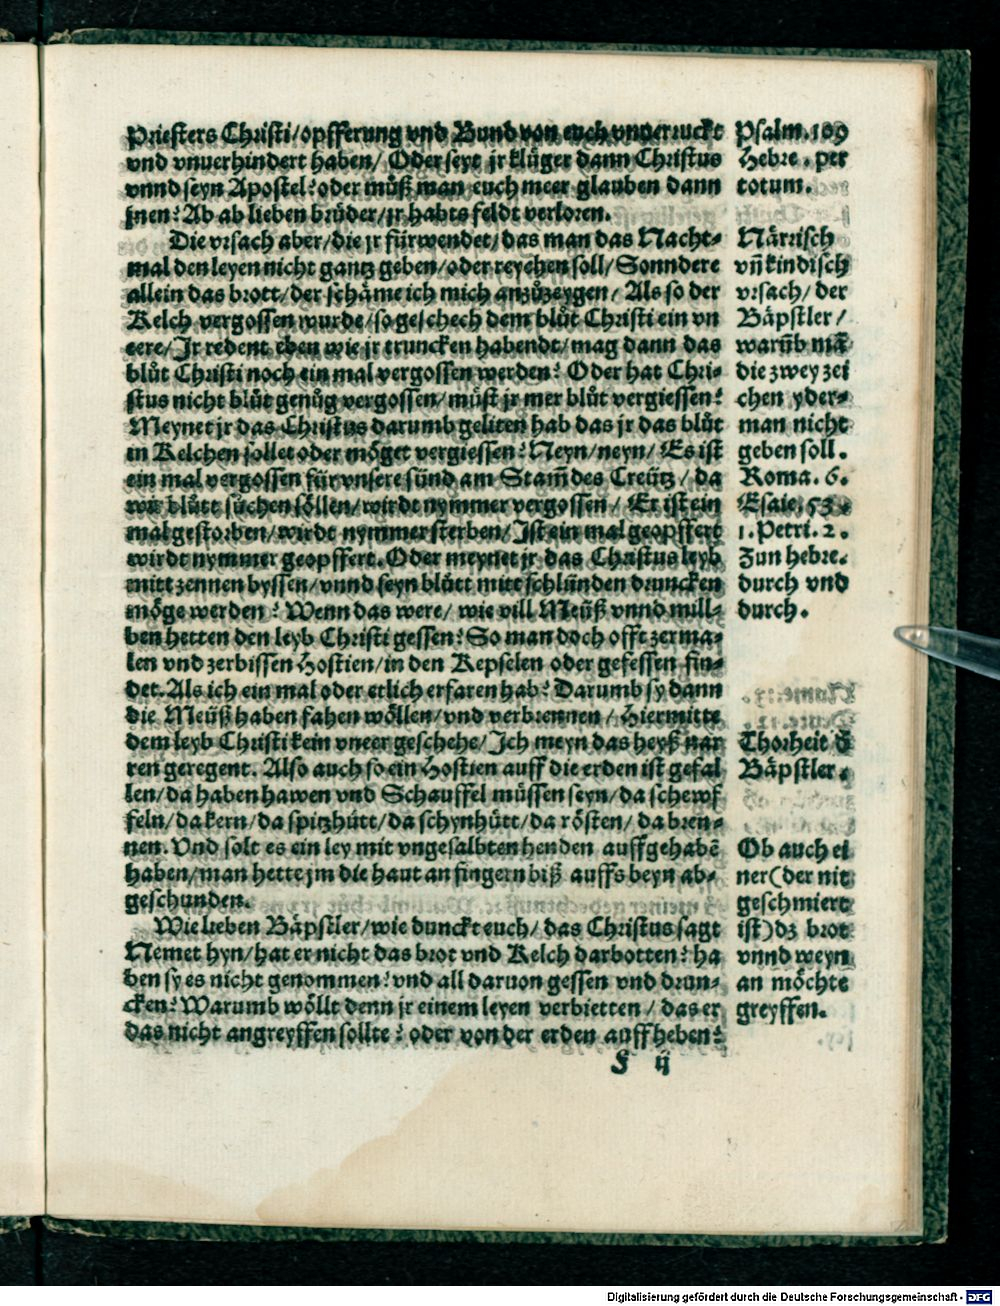 Priesters Christi/opfferung vnd Bund von euch vnuerruckt
vnd vnuerhindert haben/ Oder seyt jr klůger dann Christus
vnnd seyn Apostel? oder můß man euch meer glauben dann
jnen? Ab ab lieben brüder/jr habts feldt verloren.
Die vrsach aber/die jr fürwendet/das man das Nacht-
mal den leyen nicht gantz geben/oder reychen soll/Sonndere
allein das brott/der schäme ich mich anzůzeygen/ Als so der
Kelch vergossen wurde/so geschech dem blůt Christi ein vn
eere/Jr redent eben wie jr truncken habendt/mag dann das
blůt Christi noch ein mal vergossen werden? Oder hat Chri-
stus nicht blůt genůg vergossen/můst jr mer blůt vergiessen?
Meynet jr das Christus darumb geliten hab das jr das blůt
in Kelchen sollet oder möget vergiessen? Neyn/neyn/ Es ist
ein mal vergossen für vnsere sünd am Stam̃ des Creütz/ da
wir blůtt sůchen söllen/wirdt nymmer vergossen/ Er ist ein
mal gestorben/wirdt nymmer sterben/Jst ein mal geopffert
wirdt nymmer geopffert. Oder meynet jr das Christus leyb
mitt zennen byssen/vnnd seyn blůtt mitt schlünden druncken
möge werden? Wenn das were/ wie vill Meüß vnnd mill-
ben hetten den leyb Christi gessen? So man doch offt zerma-
len vnd zerbissen Hostien/in den Kepselen oder gefessen fin-
det. Als ich ein mal oder etlich erfaren hab? Darumb sy dann
die Meüß haben fahen wöllen/vnd verbrennen/ Hiermitte
dem leyb Christi kein vneer geschehe/Jch meyn das heyß nar
ren geregent. Also auch so ein Hostien auff die erden ist gefal
len/da haben hawen vnd Schauffel müssen seyn/da schewf
feln/da kern/da spitzhütt/da schynhütt/da rösten/da bren-
nen. Vnd solt es ein ley mit vngesalbten henden auffgehabē
haben/man hette jm die haut an fingern biß auffs beyn ab-
geschunden.
Wie lieben Bäpstler/wie dunckt euch/das Christus sagt
Nemet hyn/hat er nicht das brot vnd Kelch darbotten? ha
ben sy es nicht genommen? vnd all daruon gessen vnd drun-
cken? Warumb wöllt denn jr einem leyen verbietten/das er
das nicht angreyffen sollte? oder von der erden auffheben?
F ij
Psalm.109
Hebre. per
totum.
Närrisch
vñ kindisch
vrsach/der
Bäpstler/
warũb mã
die zwey zei
chen yder-
man nicht
geben soll.
Roma. 6.
Esaie. 53.
1. Petri. 2.
Zun hebre.
durch vnd
durch.
Thorheit đ
Bäpstler.
Ob auch ei
ner(der nit
geschmiert
ist)dz brot
vnnd weyn
an möchte
greyffen.
Digitalisierung gefördert durch die Deutsche Forschungsgemeinschaft - DFG